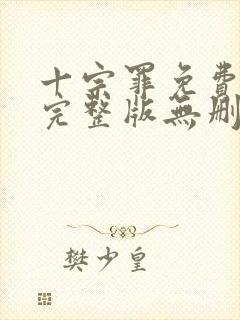 十宗罪免費
完整版無刪
樊少皇